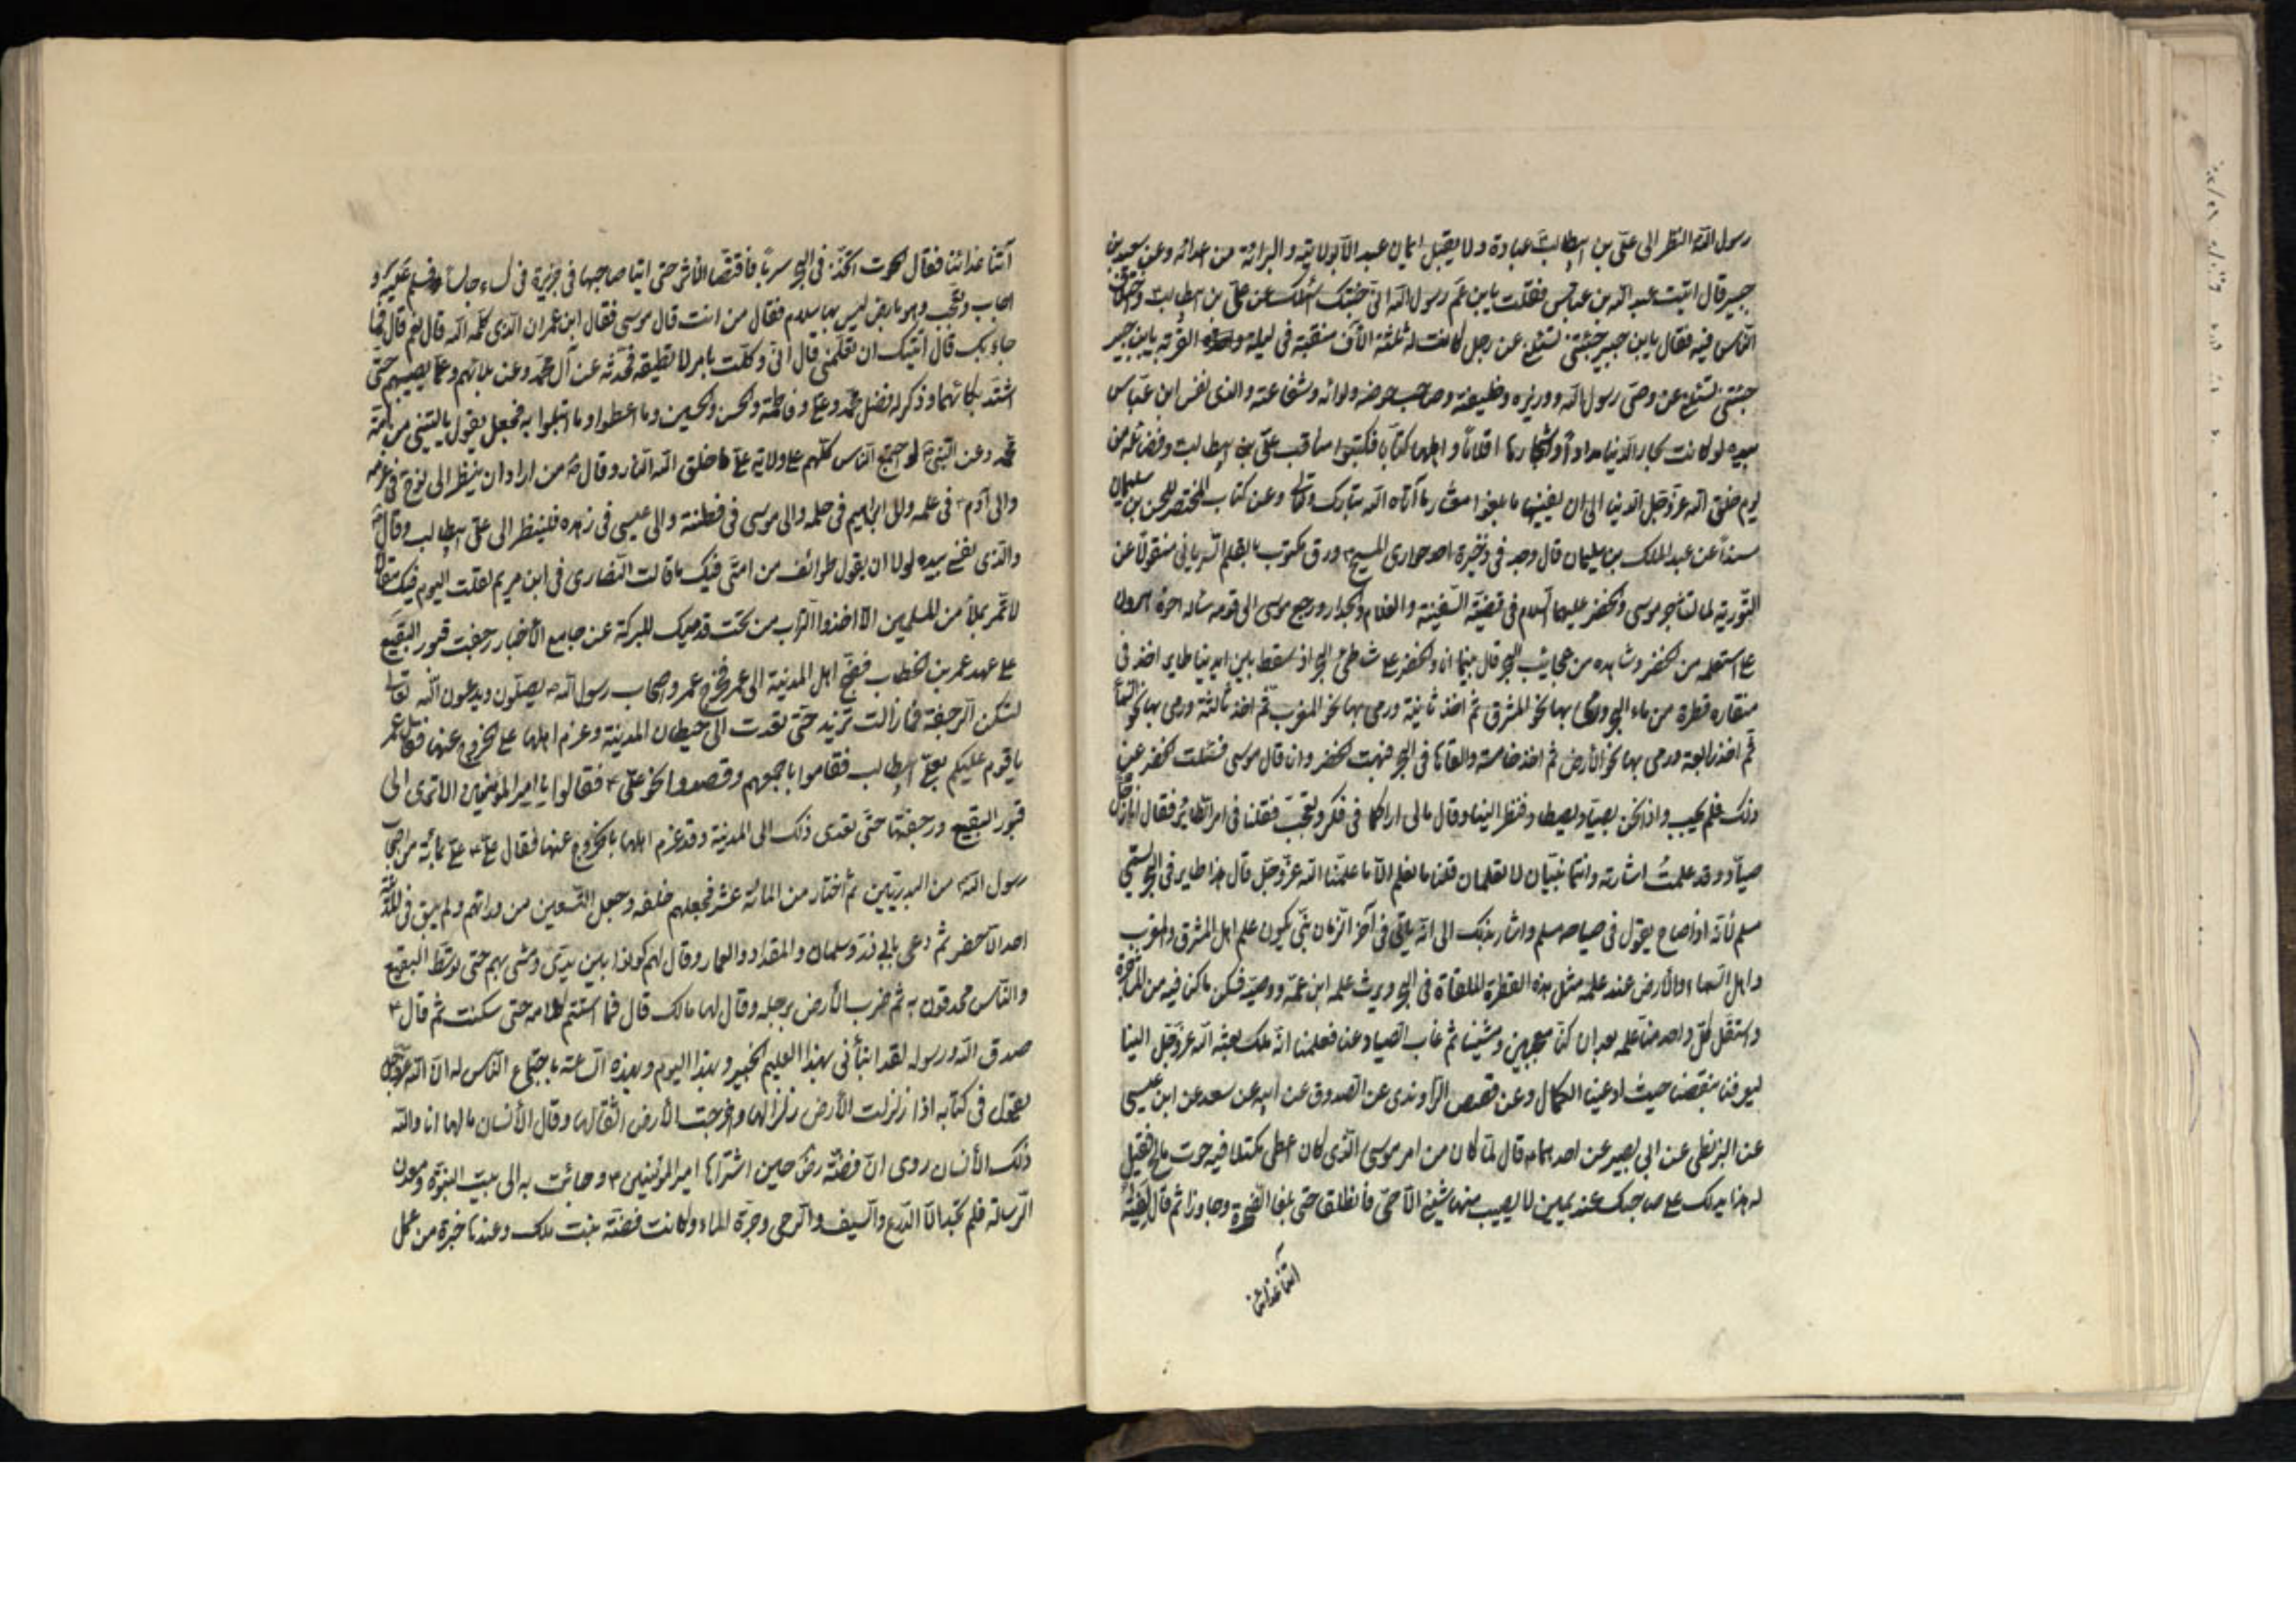 رسول الله النظر الى علي بن ابيطالب عبادة ولا يقبل ايمان عبد الا بولايته والبرائة من اعدائه وعن سعيد بن
جبير قال اتيت عبد الله بن عباس فقلت يابن عم رسول الله اني جئتك اسئلك عن علي بن ابيطالب واختلاف
الناس فيه فقال يابن جبير جئتني تسئلني عن رجل كانت له ثلثة الاف منقبة في ليلة واحدة القربة يابن جبير
جئتني تسئلني عن وصي رسول الله ووزيره وخليفته وصاحب حوضه ولوائه وشفاعته والذي نفس ابن عباس
بيده لو كانت بحار الدنيا مدادا واشجارها اقلاما واهلها كتابا فكتبوا مناقب علي بن ابيطالب وفضائله من
يوم خلق الله عز وجل الدنيا الى ان يفنيها ما بلغوا معشار ما آتاه الله تبارك وتعالى وعن كتاب المختصر للحسن بن سليمان
مسندا عن عبد الملك بن سليمان قال وجد في ذخيرة احد حواري المسيح ورق مكتوب بالقلم السرياني منقولا عن
التورية لما تشاجر موسى والخضر عليهما السلام في قضية السفينة والغلام والجدار ورجع موسى الى قومه سئله اخوه هرون
عما استعلمه من الخضر وشاهده من عجايب البحر قال بينما انا والخضر على شاطئ البحر اذ سقط بين ايدينا طاير اخذ في
منقاره قطرة من ماء البحر ورمى بها نحو المشرق ثم اخذ ثانية ورمى بها نحو المغرب ثم اخذ ثالثة ورمى بها نحو السماء
ثم اخذ رابعة ورمى بها نحو الأرض ثم اخذ خامسة والقاها في البحر فبهت الخضر وانا قال موسى فسئلت الخضر عن
ذلك فلم يجيب واذا نحن بصياد يصطاد فنظر الينا وقال ما لي اراكما في فكر وتعجب فقلنا في امر الطاير فقال انا رجل
صياد وقد علمت اشارته وانتما نبيان لا تعلمان قلنا ما نعلم الا ما علمنا الله عز وجل قال هذا طاير في البحر يسمى
مسلم لأنه اذا صاح يقول في صياحه مسلم واشار بذلك الى انه يأتي في آخر الزمان نبي يكون علم اهل المشرق والمغرب
واهل السماء والأرض عند علمه مثل هذه القطرة الملقاة في البحر ويرث علمه ابن عمه ووصيه فسكن ما كنا فيه من المشاجرة
واستقل كل واحد منا علمه بعد ان كنا معجبين ومشينا ثم غاب الصياد عنا فعلمنا انه ملك بعثه الله عز وجل الينا
ليعرفنا بنقصنا حيث ادعينا الكمال وعن قصص الراوندي عن الصدوق عن ابيه عن سعد عن ابن عيسى
عن البزنطي عن ابي بصير عن احدهما قال لما كان من امر موسى الذي كان اعطي مكتلا فيه حوت مالح فقيل
له هذا يدلك على صاحبك عند عين لا يصيب منها شيئ الا حي فانطلقا حتى بلغا الصخرة وجاوزا ثم قال لفتيه
آتنا غدائنا
آتنا غدائنا فقال الحوت اتخذ في البحر سربا فاقتصا الأثر حتى اتيا صاحبهما في جزيرة في كساء جالسا فسلم عليه و
اجاب وتعجب وهو بارض ليس بها سلام فقال من انت قال موسى فقال ابن عمران الذي كلمه الله قال نعم قال فما
جاء بك قال اتيتك ان تعلمني قال اني وكلت بامر لا تطيقه فحدثه عن آل محمد وعن بلائهم وعما يصيبهم حتى
اشتد بكائهما وذكر له فضل محمد وعلي وفاطمة والحسن والحسين وما اعطوا وما ابتلوا به فجعل يقول ياليتني من امة
محمد وعن النبي لو اجتمع الناس كلهم على ولاية علي ما خلق الله النار وقال من اراد ان ينظر الى نوح في عزمه
والى آدم في علمه والى ابراهيم في حلمه والى موسى في فطنته والى عيسى في زهده فلينظر الى علي ابيطالب وقال
والذي نفسي بيده لولا ان يقول طوائف من امتي فيك ما قالت النصارى في ابن مريم لقلت اليوم فيك مقالا
لا تمر بملأ من المسلمين الا اخذوا التراب من تحت قدميك للبركة عن جامع الأخبار رجفت قبور البقيع
على عهد عمر بن الخطاب فضج اهل المدينة الى عمر فخرج عمر واصحاب رسول الله يصلون ويدعون الله تعالى
لتسكن الرجفة فما زالت تزيد حتى تعدت الى حيطان المدينة وعزم اهلها على الخروج عنها فقال عمر
يا قوم عليكم بعلي ابيطالب فقاموا باجمعهم وقصدوا نحو علي فقالوا يا امير المؤمنين الا ترى الى
قبور البقيع ورجفتها حتى تعدى ذلك الى المدينة وقد عزم اهلها بالخروج عنها فقال علي علي بمائة من اصحاب
رسول الله من البدريين ثم اختار من المائة عشر فجعلهم خلفه وجعل التسعين من ورائهم ولم يبق في المدينة
احد الا حضر ثم دعى بابي ذر وسلمان والمقداد والعمار وقال لهم كونوا بين يدي ومشى بهم حتى توسط البقيع
والناس محدقون به ثم ضرب الأرض برجله وقال لها مالك قال فما استتم كلامه حتى سكنت ثم قال
صدق الله ورسوله لقد انبأني بهذا العليم الخبير وبهذا اليوم وبهذه الساعة باجتماع الناس له ان الله عز وجل
يقول في كتابه اذا زلزلت الأرض زلزالها واخرجت الأرض اثقالها وقال الأنسان مالها انا والله
ذلك الأنسان روى ان فضة رض حين اشتراها امير المؤمنين وجائت به الى بيت النبوة ومعدن
الرسالة فلم تجد الا الدرع والسيف والرحى وجرة الماء وكانت فضة بنت ملك وعندها خبرة من عمل